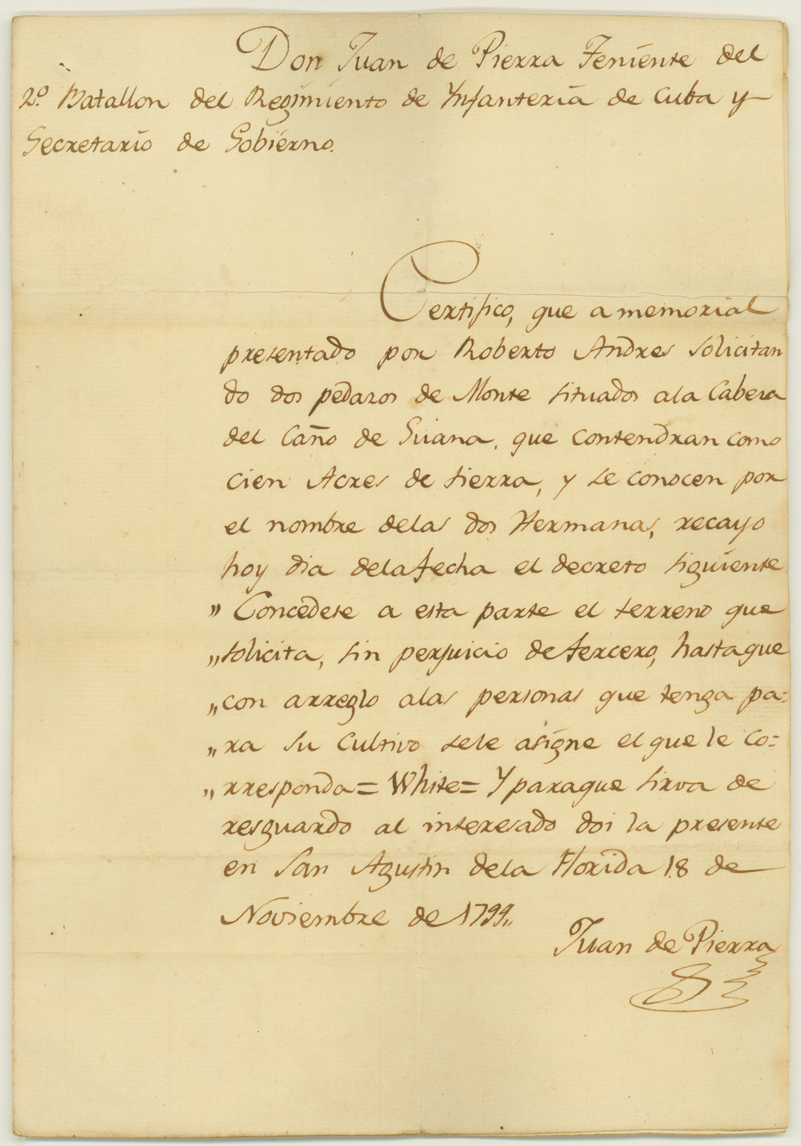 Don Juan de Pierra Teniente del
2º Batallon del Regimiento de Ynfanteria de Cuba y
Secretario de Gobierno.
Certifico, que a memorial
presentado por Roberto Andres solicitan
do dos pedazos de Monte situados ala Cabeza
del Caño de Guana, que contendran como
cien Acres de tierra, y se conocen por
el nombre delas dos Hermanas, recayo
hoy dia dela fecha el decreto siguiente
" Concedese a esta parte el terreno que
" solicita, sin perjuicio de tercero, hastaque
" con arreglo alas personas que tenga pa=
" ra su Cultivo sele asigne el que le co=
" rresponda= White= Y paraque sirva de
resguardo al interesado doi la presente
en San Agustin dela Florida 18 de
Noviembre de 1799.
Juan de Pierra